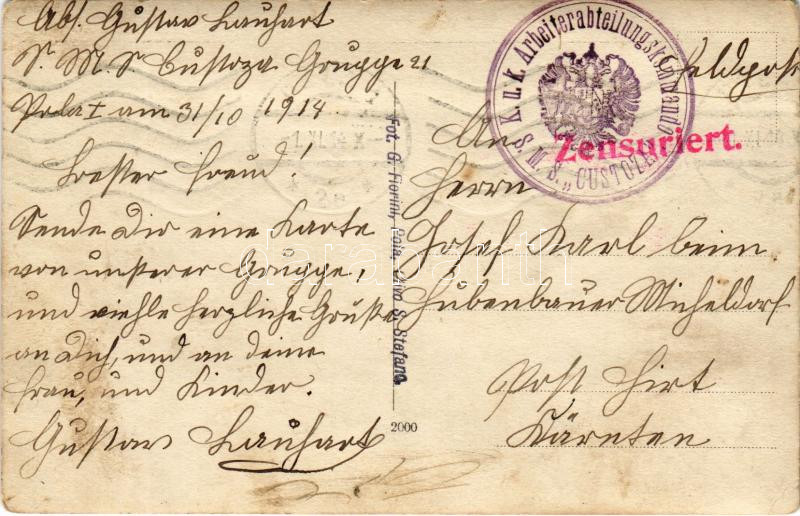 Abs. Gustav Lauhart
S. M. S Custoza Grugge 21
Pola I am 31/10 1914
Bester Freund!
Sende Dir eine Karte
von unserer Grugge,
und viehle herzliche Grüße
an Dich, und an deine
Frau, und Kinder.
Gustav Lauhart
Fot. G. Fiorini, Pola, Clivo S. Stefano
2000
K. u. k. Arbeiterabteilungskommando
S. M. S. „CUSTOZA"
Zensuriert.
Feldpost
An
Herrn
Josef Karl beim
Hubenbauer Micheldorf
Post Hirt
Kärnten
darabanth